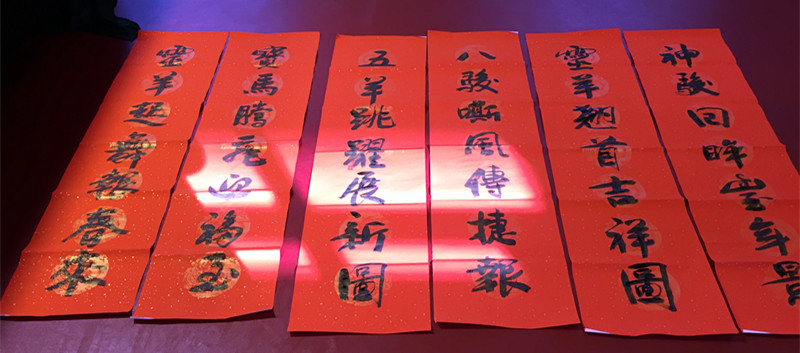 神駿回眸豐年景
靈羊翹首吉祥圖
八駿嘶風傳捷報
五羊跳躍展新圖
寶馬騰飛迎福至
靈羊起舞報春來